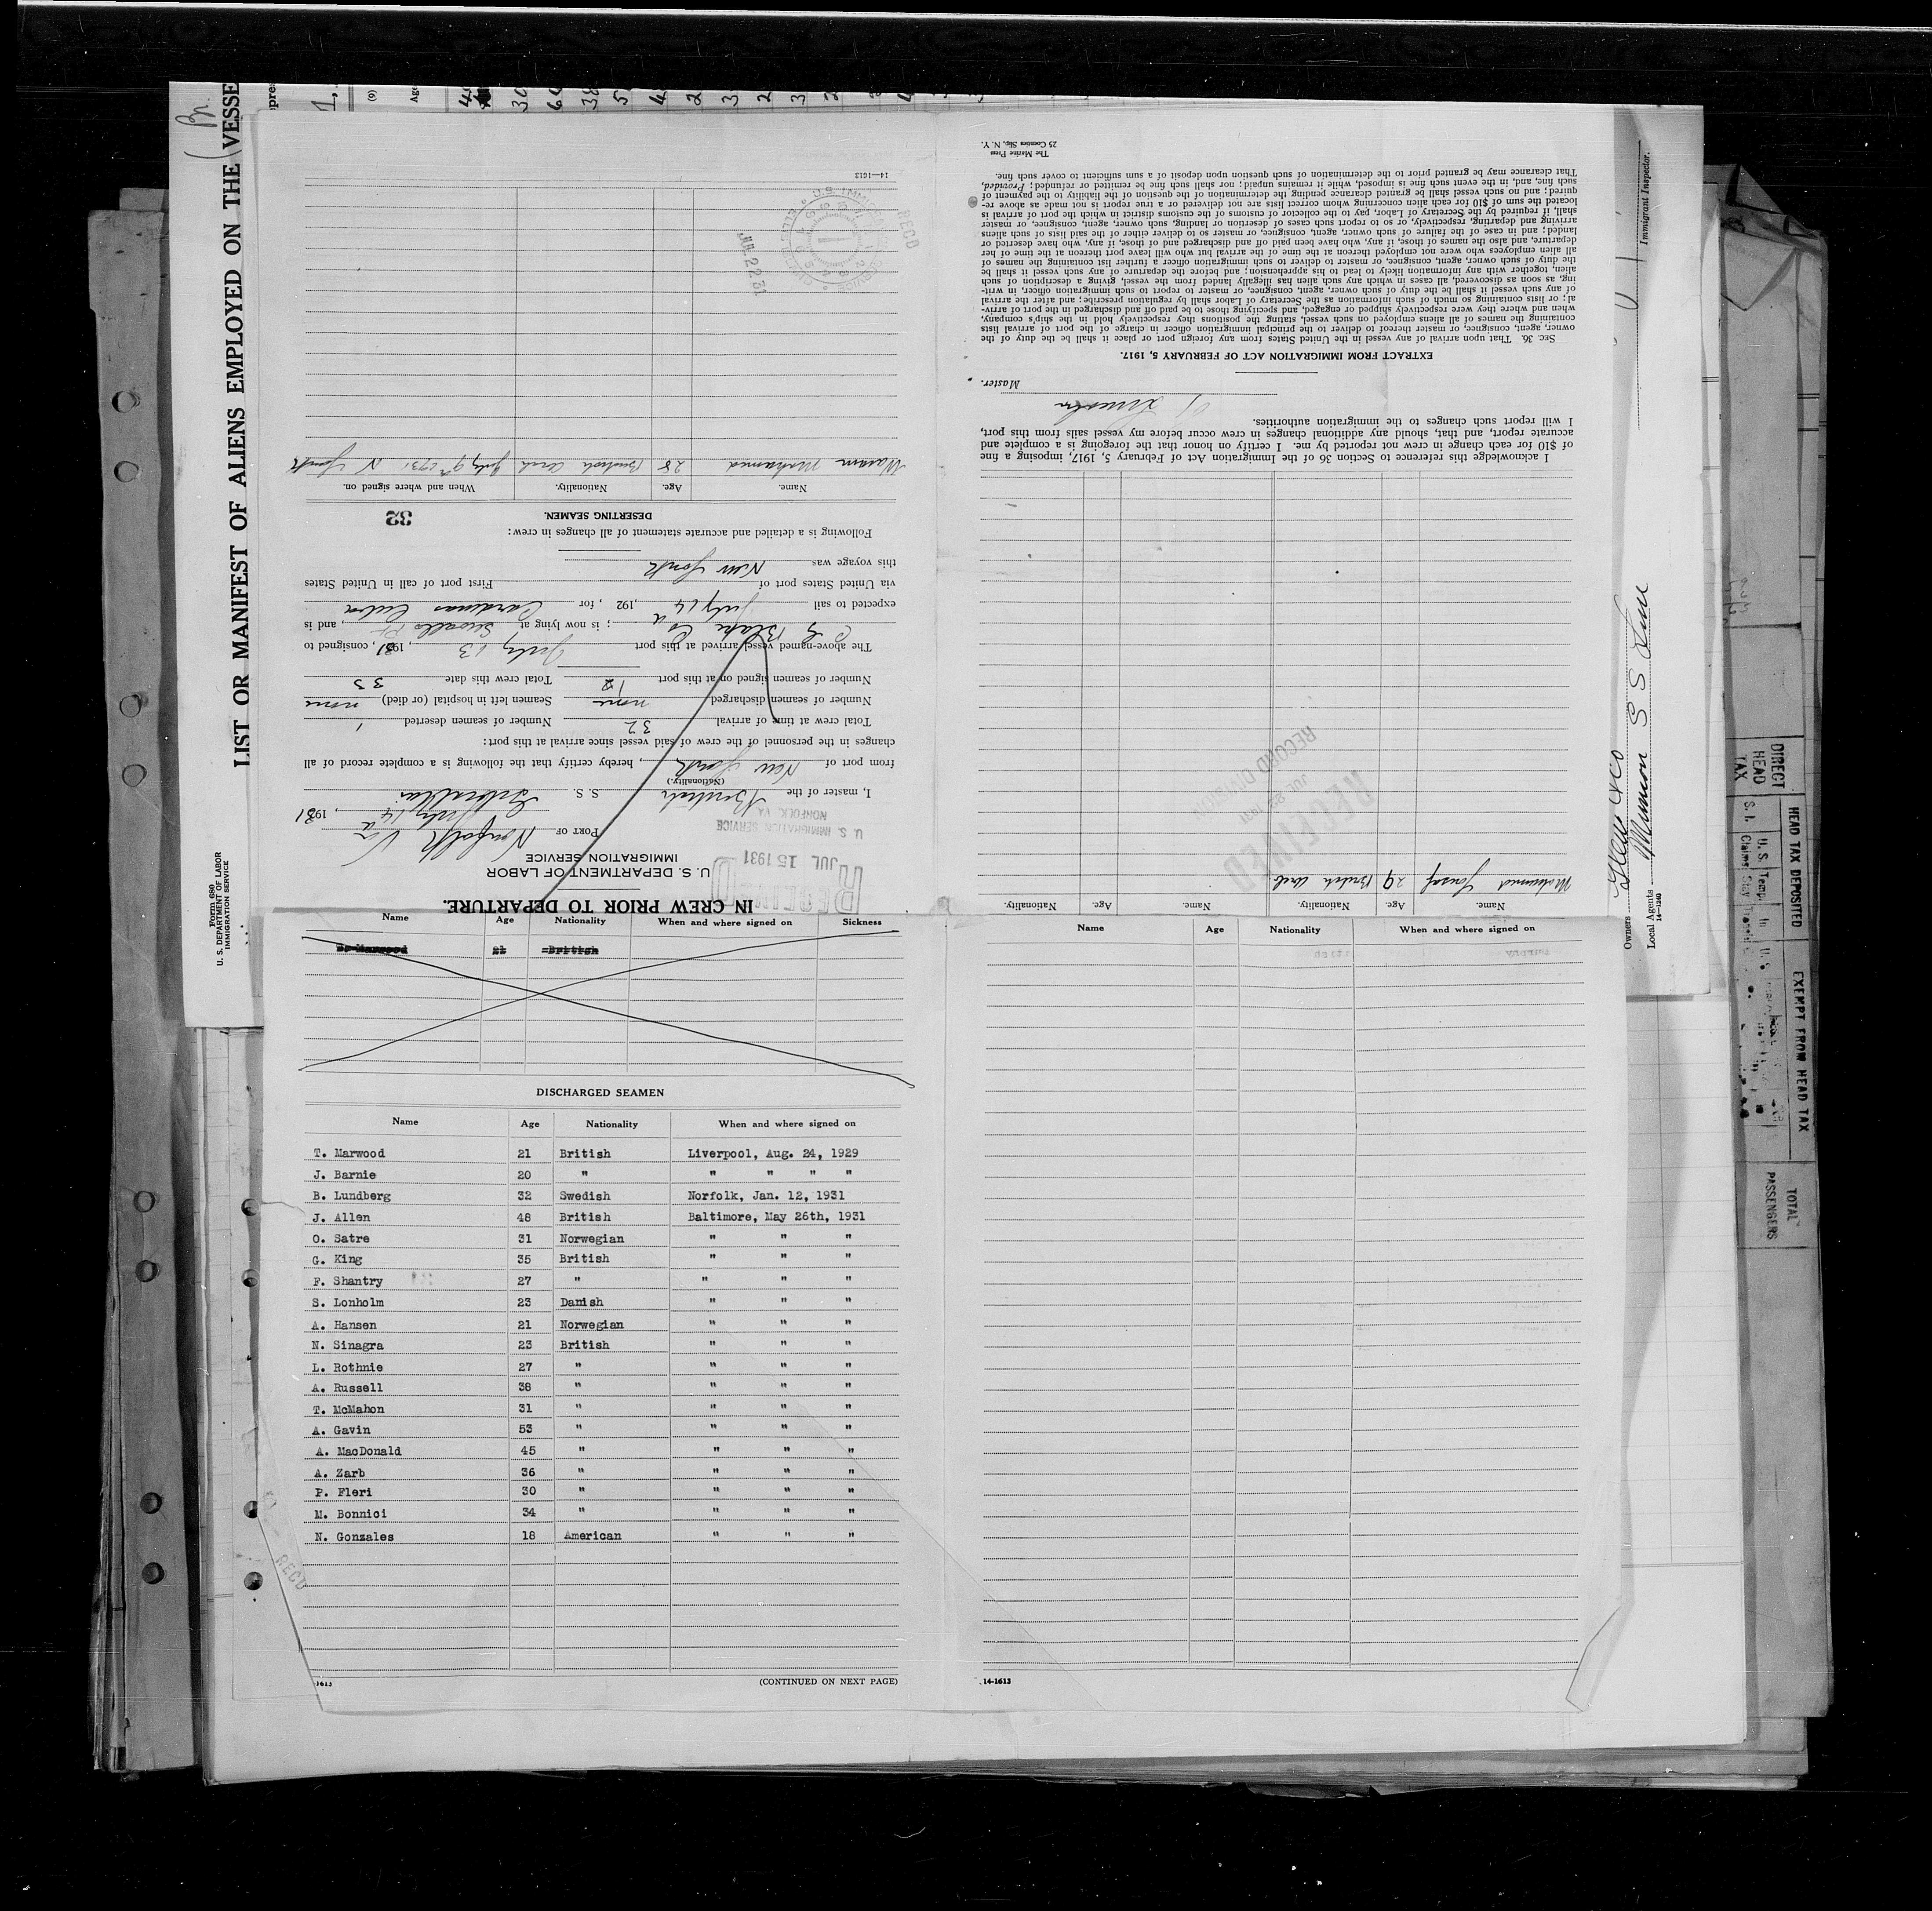 LIST OR MANIFEST OF ALIENS EMPLOYED ON THE VESSE
Form 680
U. S. DEPARTMENT OF LABOR
IMMIGRATION SERVICE
(9)
Age
IN CREW PRIOR TO DEPARTURE.
U. S. DEPARTMENT OF LABOR
IMMIGRATION SERVICE
RECEIVED
JUL 15 1931
U. S. IMMIGRATION SERVICE
NORFOLK, VA.
PORT OF Norfolk Va
July 14, 1931
I, master of the British S. S.
(Nationality.)
from port of New York, hereby certify that the following is a complete record of all
changes in the personnel of the crew of said vessel since arrival at this port:
Total crew at time of arrival 32 Number of seamen deserted 1
Number of seamen discharged none Seamen left in hospital (or died) none
Number of seamen signed on at this port 2 Total crew this date 33
The above-named vessel arrived at this port July 13, 1931, consigned to
C G Blake Co; is now lying at Sewalls Pt, and is
expected to sail July 14, 192 , for Cardenas Cuba
via United States port of First port of call in United States
this voyage was New York
Following is a detailed and accurate statement of all changes in crew:
DESERTING SEAMEN.
32
Name. Age. Nationality. When and where signed on.
Mohamed 28 British Arab July 9th 1931 N York
JUL 22 31
REC'D
14—1613
Name. Age. Nationality. Name. Age. Nationality.
Mohammed Yousaf 29 British Arab
RECEIVED
JUL 22 1931
RECORD DIVISION
I acknowledge this reference to Section 36 of the Immigration Act of February 5, 1917, imposing a fine
of $10 for each change in crew not reported by me. I certify on honor that the foregoing is a complete and
accurate report, and that, should any additional changes in crew occur before my vessel sails from this port,
I will report such changes to the immigration authorities.
Master.
EXTRACT FROM IMMIGRATION ACT OF FEBRUARY 5, 1917.
SEC. 36. That upon arrival of any vessel in the United States from any foreign port or place it shall be the duty of the
owner, agent, consignee, or master thereof to deliver to the principal immigration officer in charge of the port of arrival lists
containing the names of all aliens employed on such vessel, stating the positions they respectively hold in the ship's company,
when and where they were respectively shipped or engaged, and specifying those to be paid off and discharged in the port of arriv-
al; or lists containing so much of such information as the Secretary of Labor shall by regulation prescribe; and after the arrival
of any such vessel it shall be the duty of such owner, agent, consignee, or master to report to such immigration officer, in writ-
ing, as soon as discovered, all cases in which any such alien has illegally landed from the vessel, giving a description of such
alien, together with any information likely to lead to his apprehension; and before the departure of any such vessel it shall be
the duty of such owner, agent, consignee, or master to deliver to such immigration officer a further list containing the names of
all alien employees who were not employed thereon at the time of the arrival but who will leave port thereon at the time of her
departure, and also the names of those, if any, who have been paid off and discharged and of those, if any, who have deserted or
landed; and in case of the failure of such owner, agent, consignee, or master to deliver either of the said lists of such aliens
arriving and departing, respectively, or so to report such cases of desertion or landing, such owner, agent, consignee, or master
shall, if required by the Secretary of Labor, pay to the collector of customs of the customs district in which the port of arrival is
located the sum of $10 for each alien concerning whom correct lists are not delivered or a true report is not made as above re-
quired; and no such vessel shall be granted clearance pending the determination of the question of the liability to the payment of
such fine, and, in the event such fine is imposed, while it remains unpaid; nor shall such fine be remitted or refunded; Provided,
That clearance may be granted prior to the determination of such question upon deposit of a sum sufficient to cover such fine.
The Marine Press
25 Coenties Slip, N. Y.
Name Age Nationality When and where signed on Sickness
DISCHARGED SEAMEN
Name Age Nationality When and where signed on
T. Marwood 21 British Liverpool, Aug. 24, 1929
J. Barnie 20 " " " " "
B. Lundberg 32 Swedish Norfolk, Jan. 12, 1931
J. Allen 48 British Baltimore, May 26th, 1931
O. Satre 31 Norwegian " " "
G. King 35 British " " "
F. Shantry 27 " " " "
S. Lonholm 23 Danish " " "
A. Hansen 21 Norwegian " " "
N. Sinagra 23 British " " "
L. Rothnie 27 " " " "
A. Russell 38 " " " "
T. McMahon 31 " " " "
A. Gavin 53 " " " "
A. MacDonald 45 " " " "
A. Zarb 36 " " " "
P. Fleri 30 " " " "
M. Bonnici 34 " " " "
N. Gonzales 18 American " " "
REC'D
-1613
(CONTINUED ON NEXT PAGE)
Name Age Nationality When and where signed on
14-1613
Immigrant Inspector.
Owners
Local Agents Munson S S Line
14—1240
DIRECT HEAD TAX
HEAD TAX DEPOSITED
EXEMPT FROM HEAD TAX
TOTAL PASSENGERS